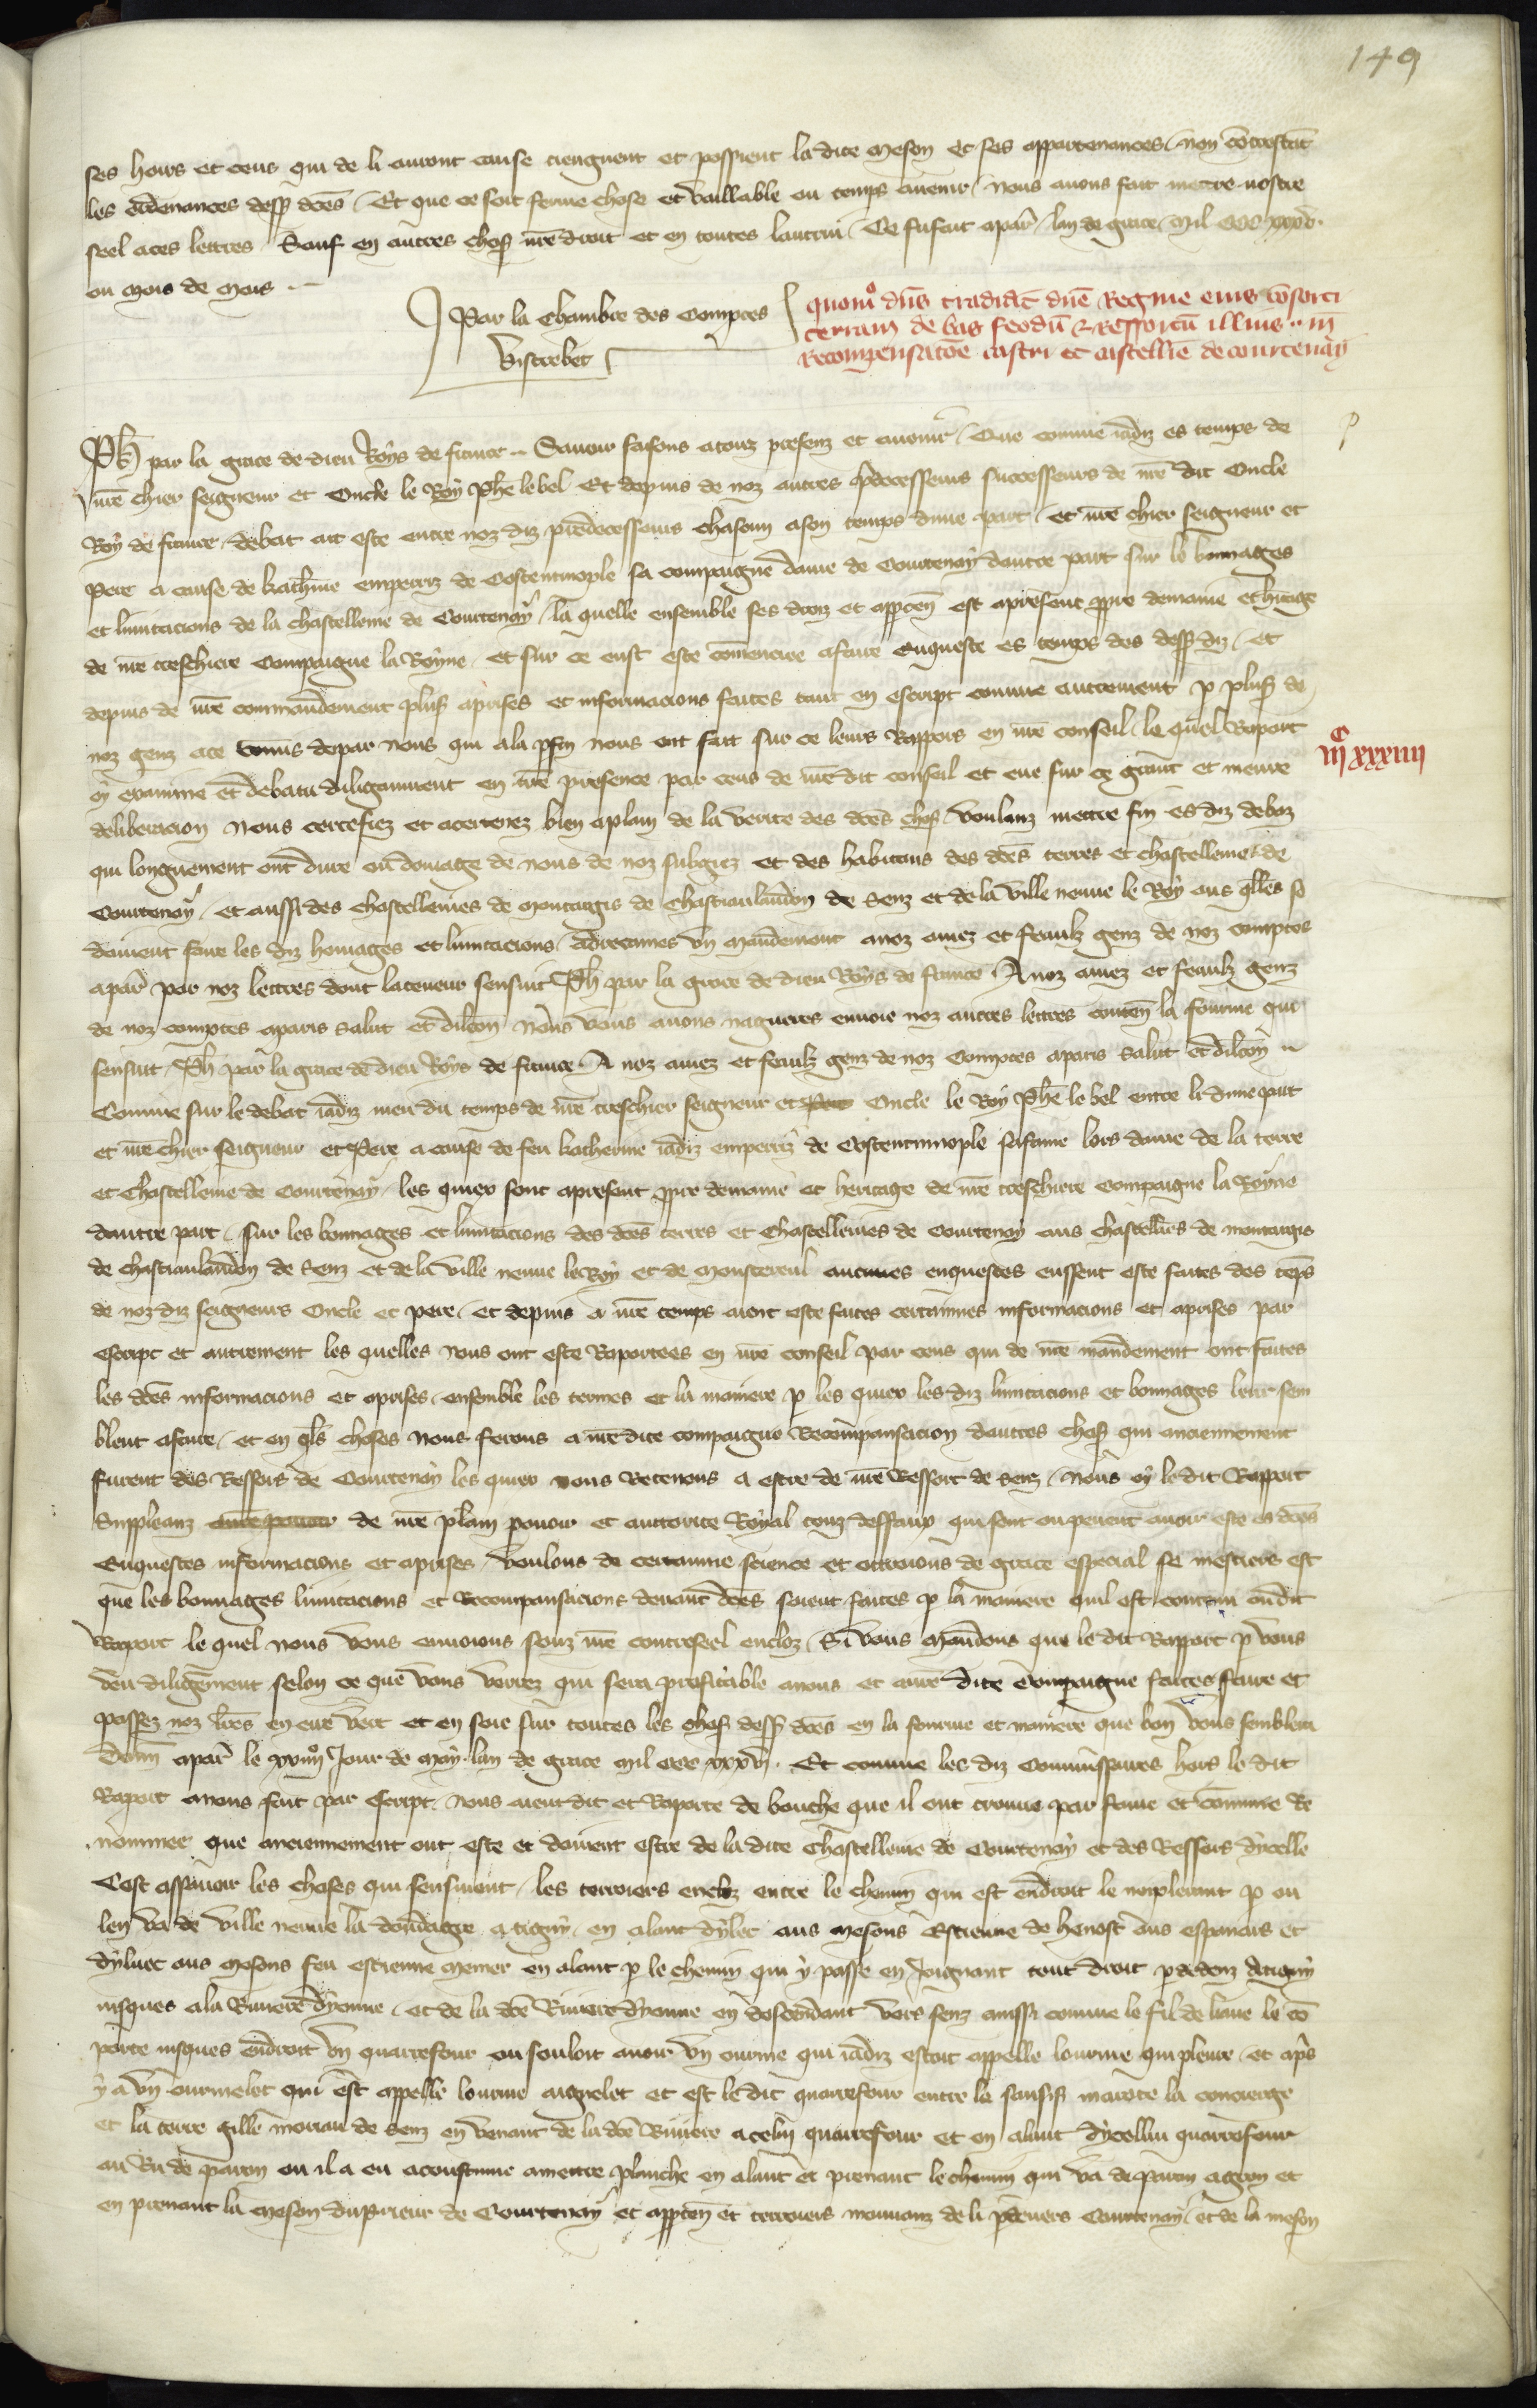 149
ses hoirs et ceus qui de li auront cause tiengnent et possient la dite meson et ses appartenances / non cōtrestāt
les ordenances dessꝰ dc̄es / Et que ce soit ferme chose et vaillable ou temps auenir / Nous auons fait mettre nostre
seel a ces lettres Sauf en autres chosꝭ nr̄e droit et en toutes lautrui / Ce fu fait a par̄ / lan de grace mil ccc xxxv.
ou mois de mars .-
Par la Chambre des Comptes
Vistrebet
quomᵒ dn̄s tradidit dn̄e Regine eius cōsorti
terram de bas feodū & ressortū illius .. in
recompensatōe castri et castellīe de courtenay
Ph̄ par la grace de dieu Roys de france .. Sauoir faisons a touz presenz et auenir / Que comme iadiz es temps de
nr̄e chier seigneur et Oncle le Roy Phē lebel Et depuis de noz autres p̄decesseurs successeurs de nr̄e dit Oncle
Roy de france / debat ait este entre noz diz predecesseurs chascun a son temps dune part / et nr̄e chier seigneur et
Pere a cause de kathine emperriz de Costentinople sa compaigne dame de Courtenay dautre part sur le bonnages
et limitacions de la chastellenie de Courtenay / la quelle ensemble ses droiz et apptēn est apresent ꝓpre demaine et hitage
de nr̄e treschiere Compaigne la Royne / et sur ce eust este cōmencie a faire enqueste es temps des dessꝰ diz / et
depuis de nr̄e commandement plusꝭ aprises et informacions faites tant en escript comme autrement p̱ plusꝭ de
noz genz a ce comis depar nous qui a la p̱fin nous ont fait sur ce leurs Rappors en nr̄e conseil / le quel Raport
oy examine et debatu diligamment en nr̄e presence par ceus de nr̄e dit conseil et eue sur ce grant et meure
iijᶜ xxxiiij
deliberacion Nous certefiez et acertenez bien a plain de la verite des dc̄es chosꝭ voulanz mettre fin es diz debaz
qui longuement ont dure ou domage de nous de noz subgiez et des habitans des dc̄es terres et chastellenie de
Courtenay / et aussi des chastellenies de montargis de chastiaulandon de Senz et de la ville neuue le Roy aus q̄lles se
doiuent faire les diz homages et limitacions / adrecames vn mandement a noz amez et feaulz genz de noz comptes
a par̄ par noz lettres dont la teneur sensuit Ph̄ par la grace de dieu Roys de france A noz amez et feaulz genz
de noz comptes a paris salut et dilc̄on Nous vous auons nagueres enuoie noz autres lettres conten̄ la fourme qui
sensuit / Ph̄ par la grace de dieu Roys de france A noz amez et feaulz genz de noz Comptes a paris salut et dilc̄on ..
Comme sur le debat iadiz meu du temps de nr̄e treschier seigneur et Pere Oncle le Roy Phē le bel entre li dune part
et nr̄e chier seigneur et Pere a cause de feu katherine iadiz emperriz de Costentinnople sa fame lors dame de la terre
et Chastellenie de Courtenay / les quiex sont apresent ꝓpre demaine et heritage de nr̄e treschiere Compaigne la Royne
dautre part / sur les bonnages et limitacions des dc̄es terres et chastellenies de Courtenay aus chastelīes de montargis
de chastiaulandon de Senz et de la ville neuue le Roy et de monstereul aucunes enquestes eussent este faites des tēps
de noz diz seigneurs Oncle et pere / et depuis a nr̄e temps aient este faites certainnes informacions et aprises par
escript et autrement les quelles nous ont este Raportees en nr̄e conseil par ceus qui de nr̄e mandement ont faites
les dc̄es informacions et aprises / ensemble les termes et la maniere p̱ les quiex les diz limitacions et bonnages leur sem
blent a faire / et en q̄ls choses nous ferons a nr̄e dite compaigne Recompansacion dautres chosꝭ qui anciennement
furent des Ressors de Courtenay les quiex nous Retenons a estre de nr̄e Ressort de Senz / Nous oy le dit Rapport
Suppleanz de nr̄e plain pouoir et auctorite Royal touz deffaux qui sont ou peuent auoir este es dc̄es
Enquestes informacions et aprises voulons de certainne science et ottroions de grace especial se mestiers est
que les bonnages limitacions et Recompansacions deuant dc̄es soient faites p̱ la maniere quil est contenu ou dit
Raport le quel nous vous enuoions souz nr̄e contreseel encloz / Si vous mandons que le dit Rapport p̱ vous
veu diligēment selon ce que vous verrez qui sera profitable a nous et a nr̄e dite compaigne faites faire et
passez noz lr̄es en cire vert et en soie sur toutes les chosꝭ dessꝰ dc̄es en la fourme et maniere que bon vous semblera
Donn̄ a par̄ le xxiiijᵒ Jour de may . lan de grace mil ccc xxxv. Et comme les diz Commissaires hors le dit
Raport a nous fait par escript nous aient dit et Raporte de bouche que il ont trouue par fame et cōmune re
nommee que anciennement ont este et doiuent estre de la dite chastellenie de Courtenay et des Ressors dycelle
Cest assauoir les choses qui sensiuent / les terroiers enclz entre le chemin qui est endroit le noiplemant p̱ ou
len va de ville neuue la dondagre a tigny / en alant dyluec aus mesons Estienne de henost aus espenars et
dyluec aus mesons feu estienne memer en alant p̱ le chemin qui y passe en Joignant tout droit p̱ dedenz Atigny
iusques a la Riuiere dyonne / et de la dc̄e Riuiere dyonne en descendant vers senz aussi comme le fil de liaue le cō
porte iusques endroit vn quarrefour ou souloit auoir vn ourme qui iadiz estoit appelle lourme qui pleure / et apꝭ
y a vn ourmelet qui est appelle lourme aignelet et est le dit quarrefour entre la sausis marote la concierge
et la terre gille moriau de Senz en venant de la dc̄e Riuiere a celuy quarrefour et en alant dycelluy quarrefour
au Ru de paron ou il a eu acoustume a mettre planche en alant et prenant le chemin qui va de paron agron et
en prenant la meson du prieur de Courtenay et apptēn et terroiers mouuanz de li p̱ deuers Courtenay / et de la meson